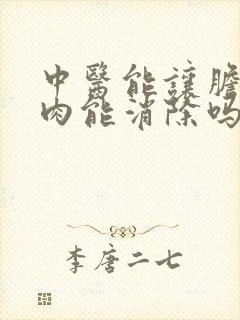 中醫能讓膽
肉能消除吗
李唐二七